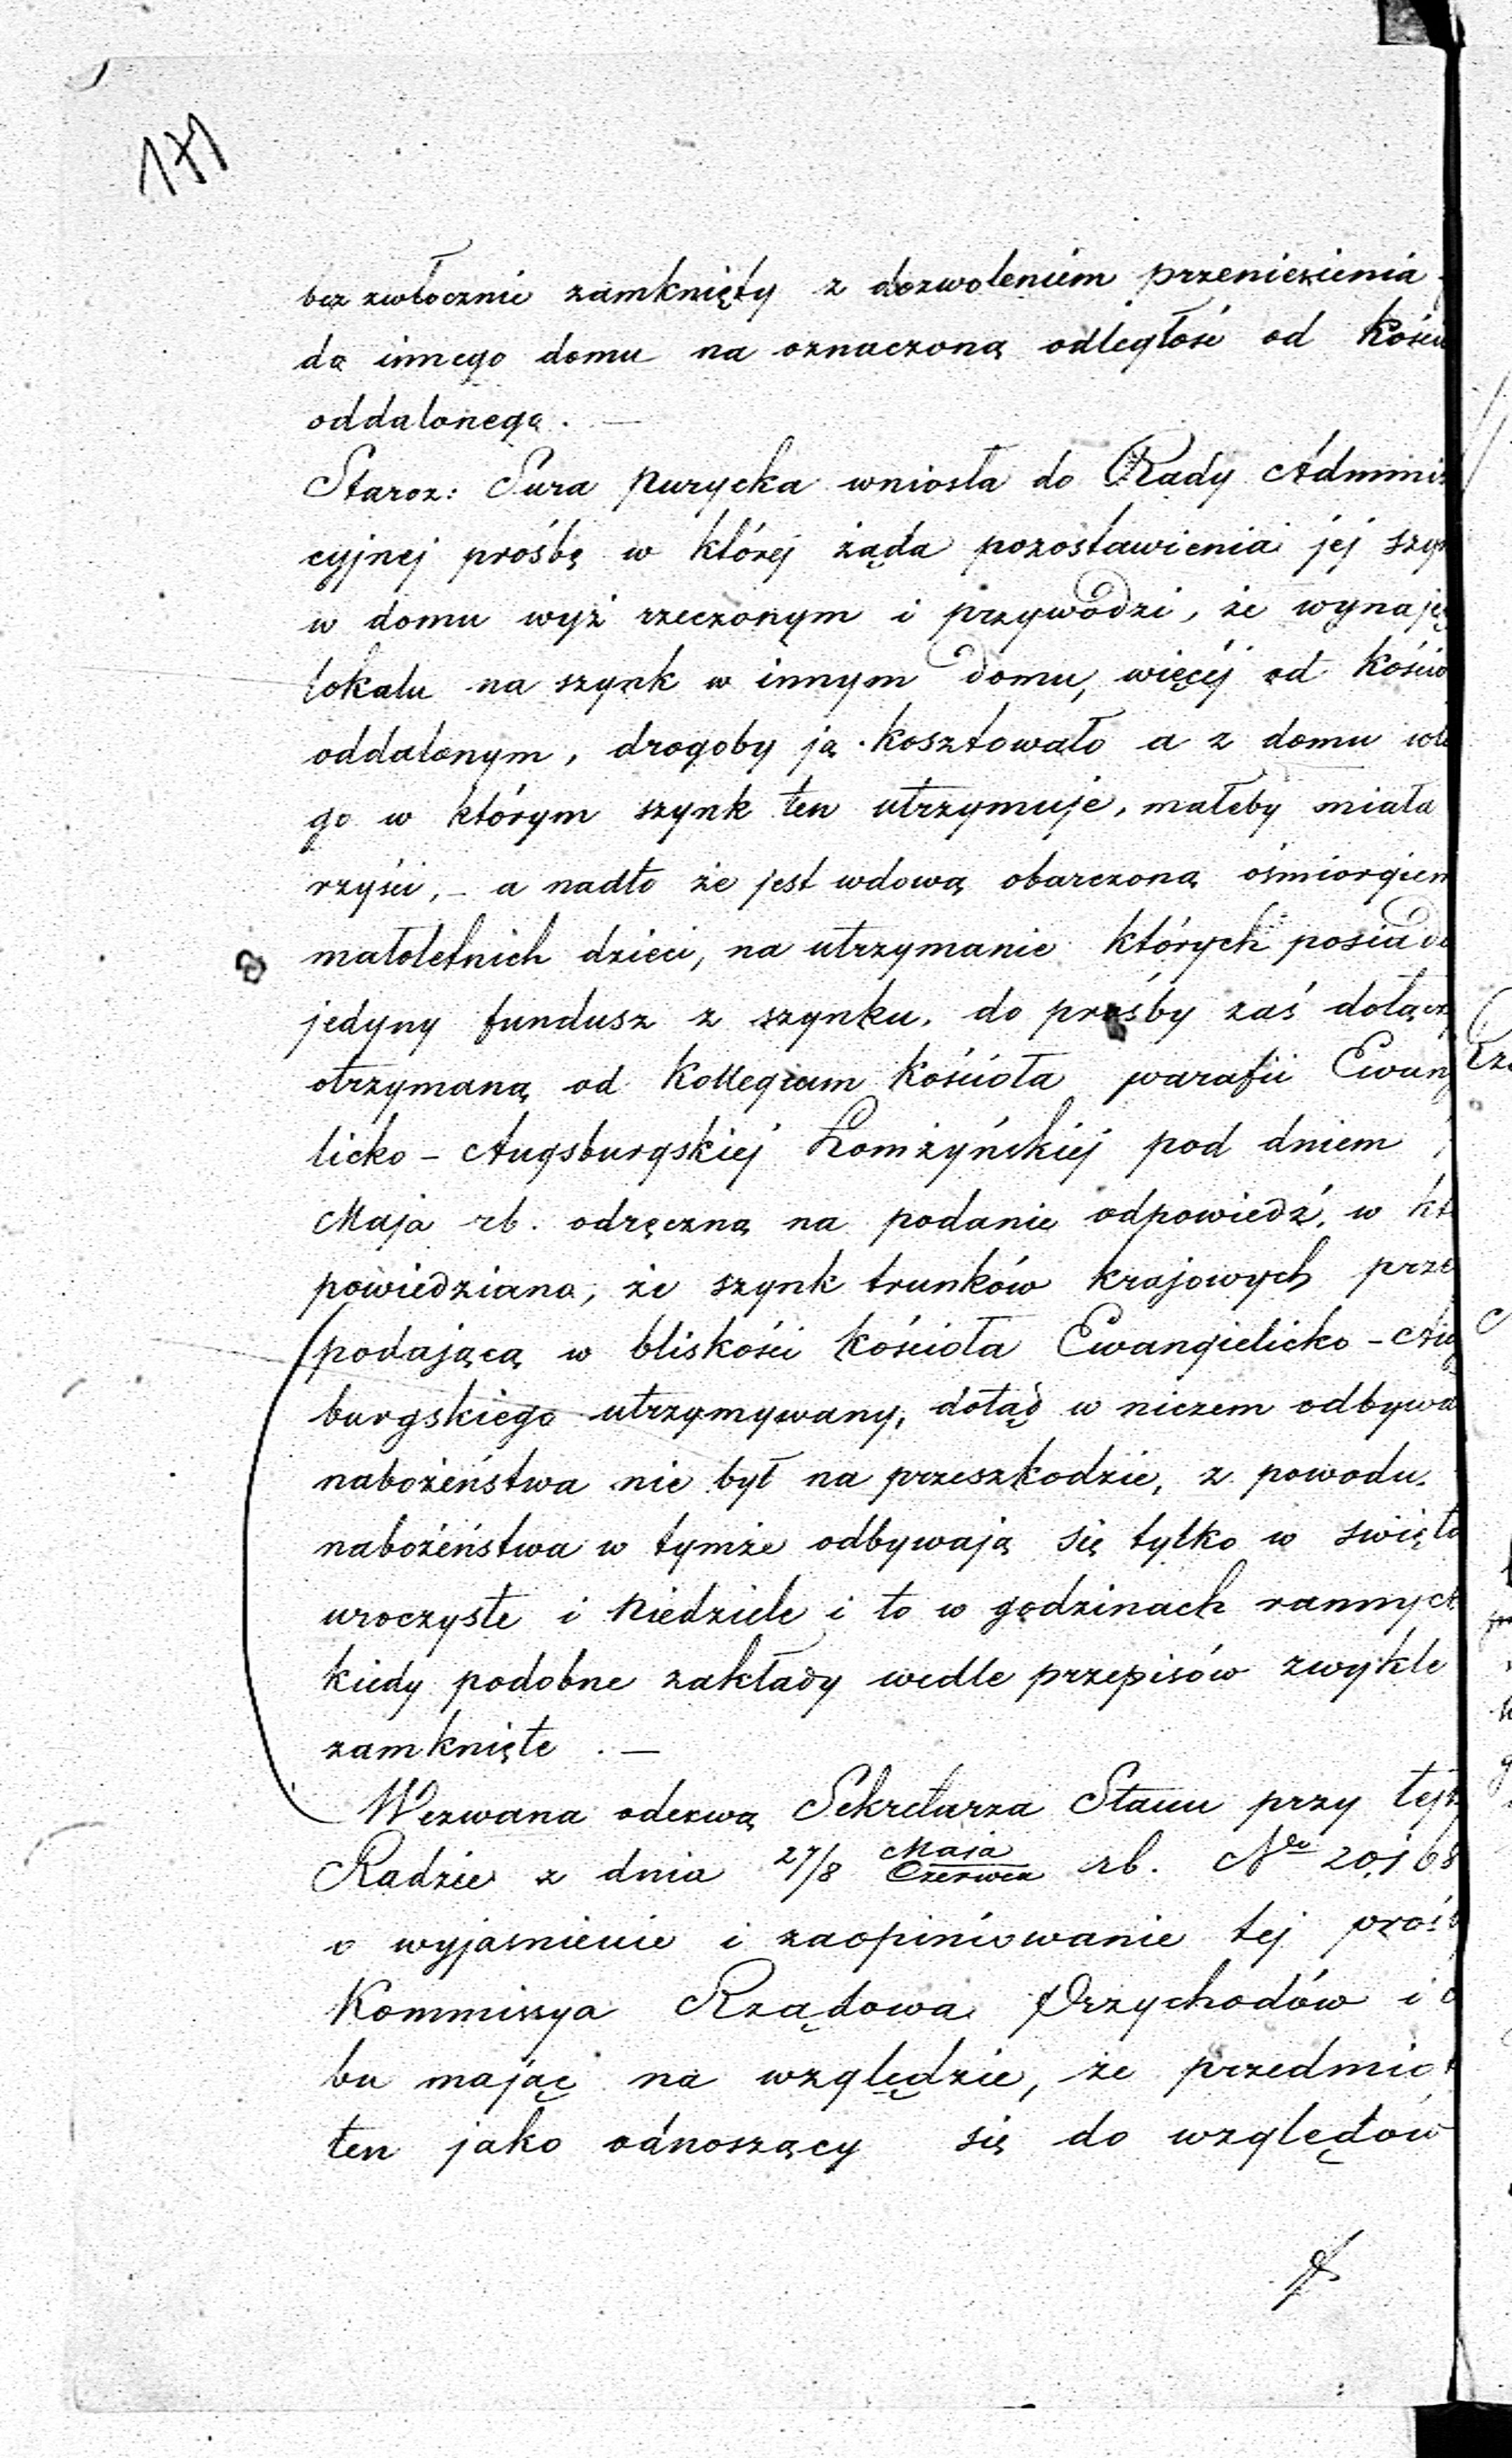 171
bez zwłocznie zamknięty z dozwoleniem przeniesienia
do innego domu na oznaczoną odległość od Kościo
oddalonego. —
Staroz: Sura Purycka wniosła do Rady Adminis
cyjnej prośbę w której żąda pozostawienia jej szyn
w domu wyż rzeczonym i przywodzi, że wynaję
lokalu na szynk w innym domu, więcéj od kościo
oddalonym, drogoby ją kosztowało a z domu wła
go w którym szynk ten utrzymuje, małeby miała
rzyści, — a nadto że jest wdową obarczoną ośmiorgiem
małoletnich dzieci, na utrzymanie których posiada
jedyny fundusz z szynku, do prośby zaś dołącz
otrzymaną od Kollegium Kościoła parafii Ewang
licko - Augsburgskiej Łomżyńskiej pod dniem
Maja rb. odręczną na podanie odpowiedź, w któ
powiedziano, że szynk trunków krajowych prze
podającą w bliskości kościoła Ewangielicko - Aug
burgskiego utrzymywany, dotąd w niczem odbywa
nabożeństwa nie był na przeszkodzie, z powodu
nabożeństwa w tymże odbywają się tylko w święta
uroczyste i Niedziele i to w godzinach rannych
kiedy podobne zakłady wedle przepisów zwykle
zamknięte. —
Wezwana odezwą Sekretarza Stanu przy tejż
Radzie z dnia 27/8 Maja/Czerwca rb. No 20,168
o wyjaśnienie i zaopiniowanie tej prośb
Kommissya Rządowa Przychodów i
bu mając na względzie, że przedmiot
ten jako odnoszący się do względów